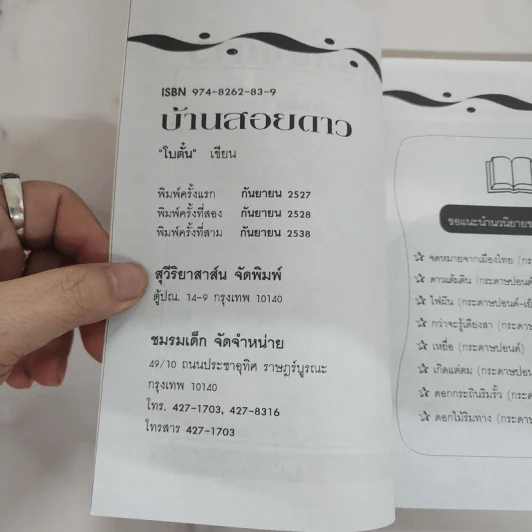 ISBN 974-8262-83-9
บ้านสอยดาว
"โบตั๋น" เขียน
พิมพ์ครั้งแรก กันยายน 2527
พิมพ์ครั้งที่สอง กันยายน 2528
พิมพ์ครั้งที่สาม กันยายน 2538
สุวีริยาสาส์น จัดพิมพ์
ตู้ปณ. 14-9 กรุงเทพ 10140
ชมรมเด็ก จัดจำหน่าย
49/10 ถนนประชาอุทิศ ราษฎร์บูรณะ
กรุงเทพ 10140
โทร. 427-1703, 427-8316
โทรสาร 427-1703
ขอแนะนำนวนิยายข
☆ จดหมายจากเมืองไทย (กร
☆ ดาวแต้มดิน (กระดาษปอนด์
☆ ไฟในฝัน (กระดาษปอนด์-เย็
☆ กว่าจะรู้เดียงสา (กระดา
☆ เหยื่อ (กระดาษปอนด์)
☆ เกิดแต่ตม (กระดาษปอน
☆ ดอกกระถินริมรั้ว (กระด
☆ ดอกไม้ริมทาง (กระดาษ